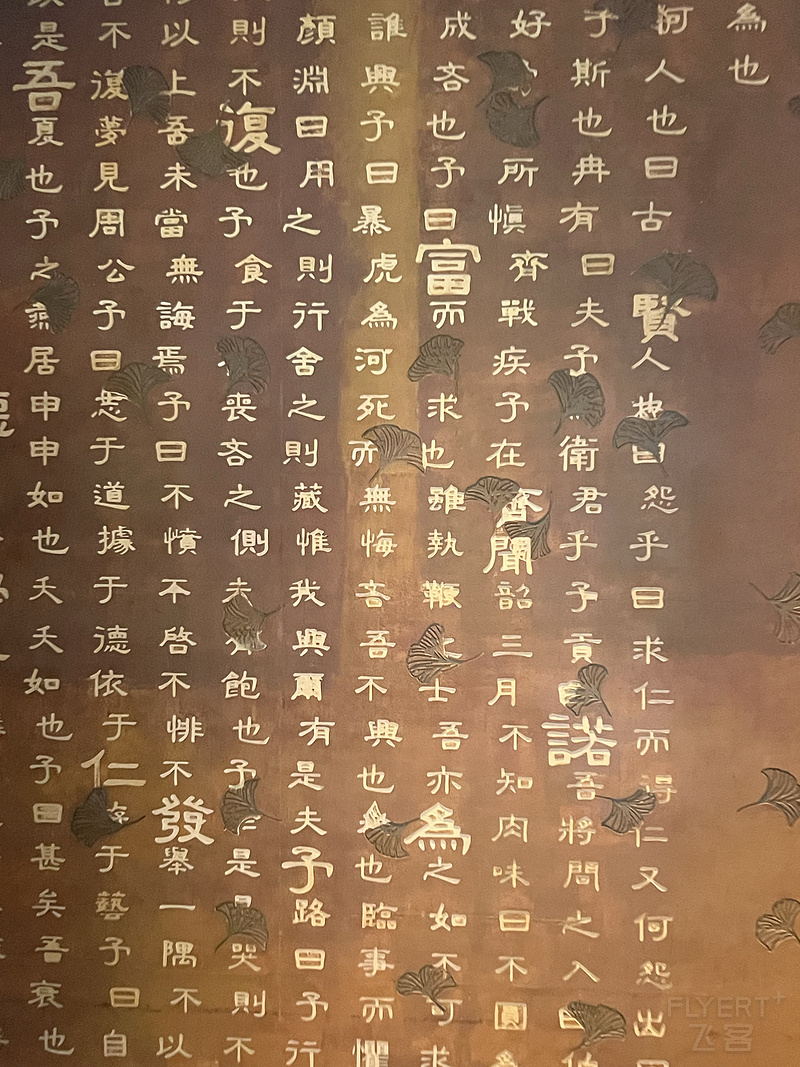 是吾夏也子之燕居申申如也夭夭如也子曰甚矣吾衰也
不復夢見周公子曰志于道據于德依于仁于藝子曰自
以上吾未當無誨焉子曰不憤不啓不悱不發舉一隅不以
則不復也子食于喪者之側未飽也子是哭則不
顏淵曰用之則行舍之則藏惟我與爾有是夫子路曰子行
誰與子曰暴虎為河死而無悔者吾不與也也臨事而懼
成者也子曰富而求也雖執鞭之士吾亦為之如不可求
好所慎齊戰疾子在齊聞韶三月不知肉味曰不圖為
子斯也冉有曰夫子衛君乎子貢曰諾吾將問之入曰伯
何人也曰古賢人也曰怨乎曰求仁而得仁又何怨出曰
為也
FLYERT+
飞客